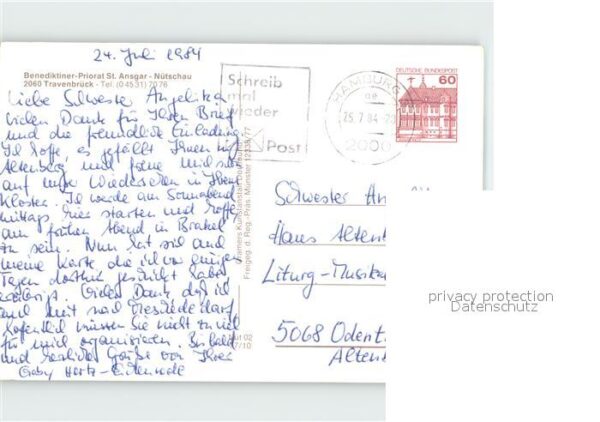 24. Juli 1984
Benediktiner-Priorat St. Ansgar - Nütschau
2060 Travenbrück - Tel. (0 45 31) 70 76
Liebe Schwester Angelika,
vielen Dank für Ihren Brief
und die freundliche Einladung
Ich hoffe, es gefällt Ihnen in
Altenberg und freue mich
auf unser Wiedersehen in Ihrem
Kloster. Ich werde am Sonnabend
mittags hier starten und hoffe
am frühen Abend in Brakel
zu sein. Nun hat sich auch
meine Karte die ich vor einigen
Tagen dorthin geschickt habe
erübrigt. Vielen Dank daß ich
auch mit nach Fresdede darf.
Hoffentlich müssen Sie nicht zu viel
für mich organisieren. Bis bald
und herzliche Grüße von Ihrer
Gaby
Schreib
mal
wieder
Post
HAMBURG
25.7.84
2000
DEUTSCHE BUNDESPOST
60
Schwester An
Haus Altenb
Liturg-Musika
5068 Odent
Altenb
privacy protection
Datenschutz